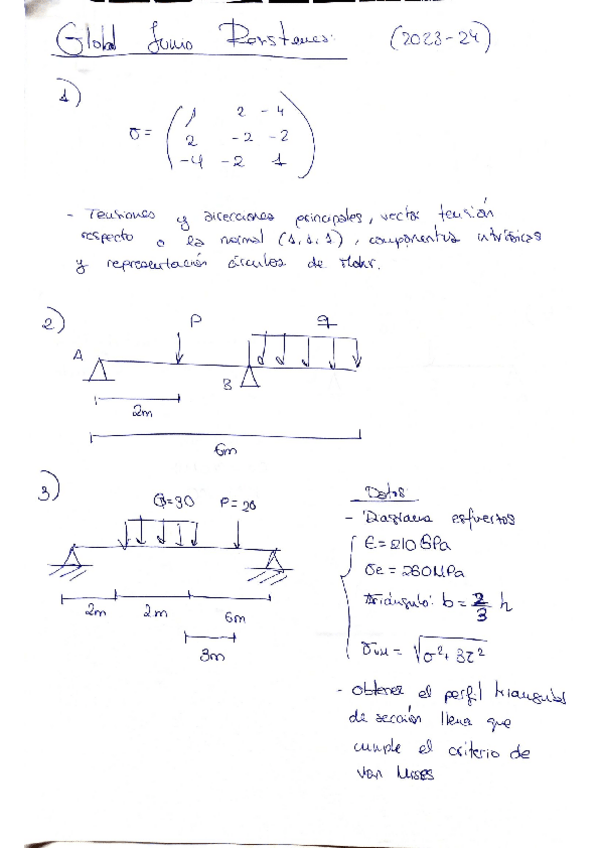 Global Junio (2023-24)
1)
σ = ( 1 2 -4
2 -2 -2
-4 -2 1 )
- Tensiones y direcciones principales, vector tensión
respecto a la normal (1,1,1), componentes intrínsicas
y representación círculos de Mohr.
2)
P q
A
B
2m
6m
3)
Q=30 P=20
2m 2m 6m
3m
Datos
- Diagrama esfuerzos
E=210GPa
σe = 260MPa
triángulo: b = 2/3 h
σVM = √σ²+3τ²
- Obtener el perfil triangular
de sección llena que
cumple el criterio de
Von Mises